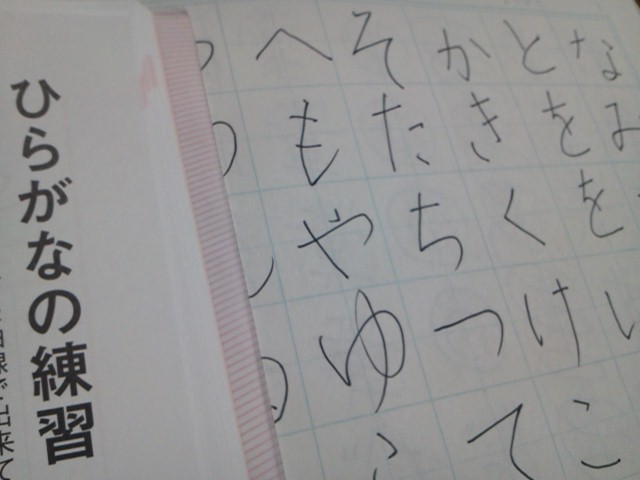 ひらがなの練習
へそかとな
もたきをみ
やちくを
ゆつけい
てこ